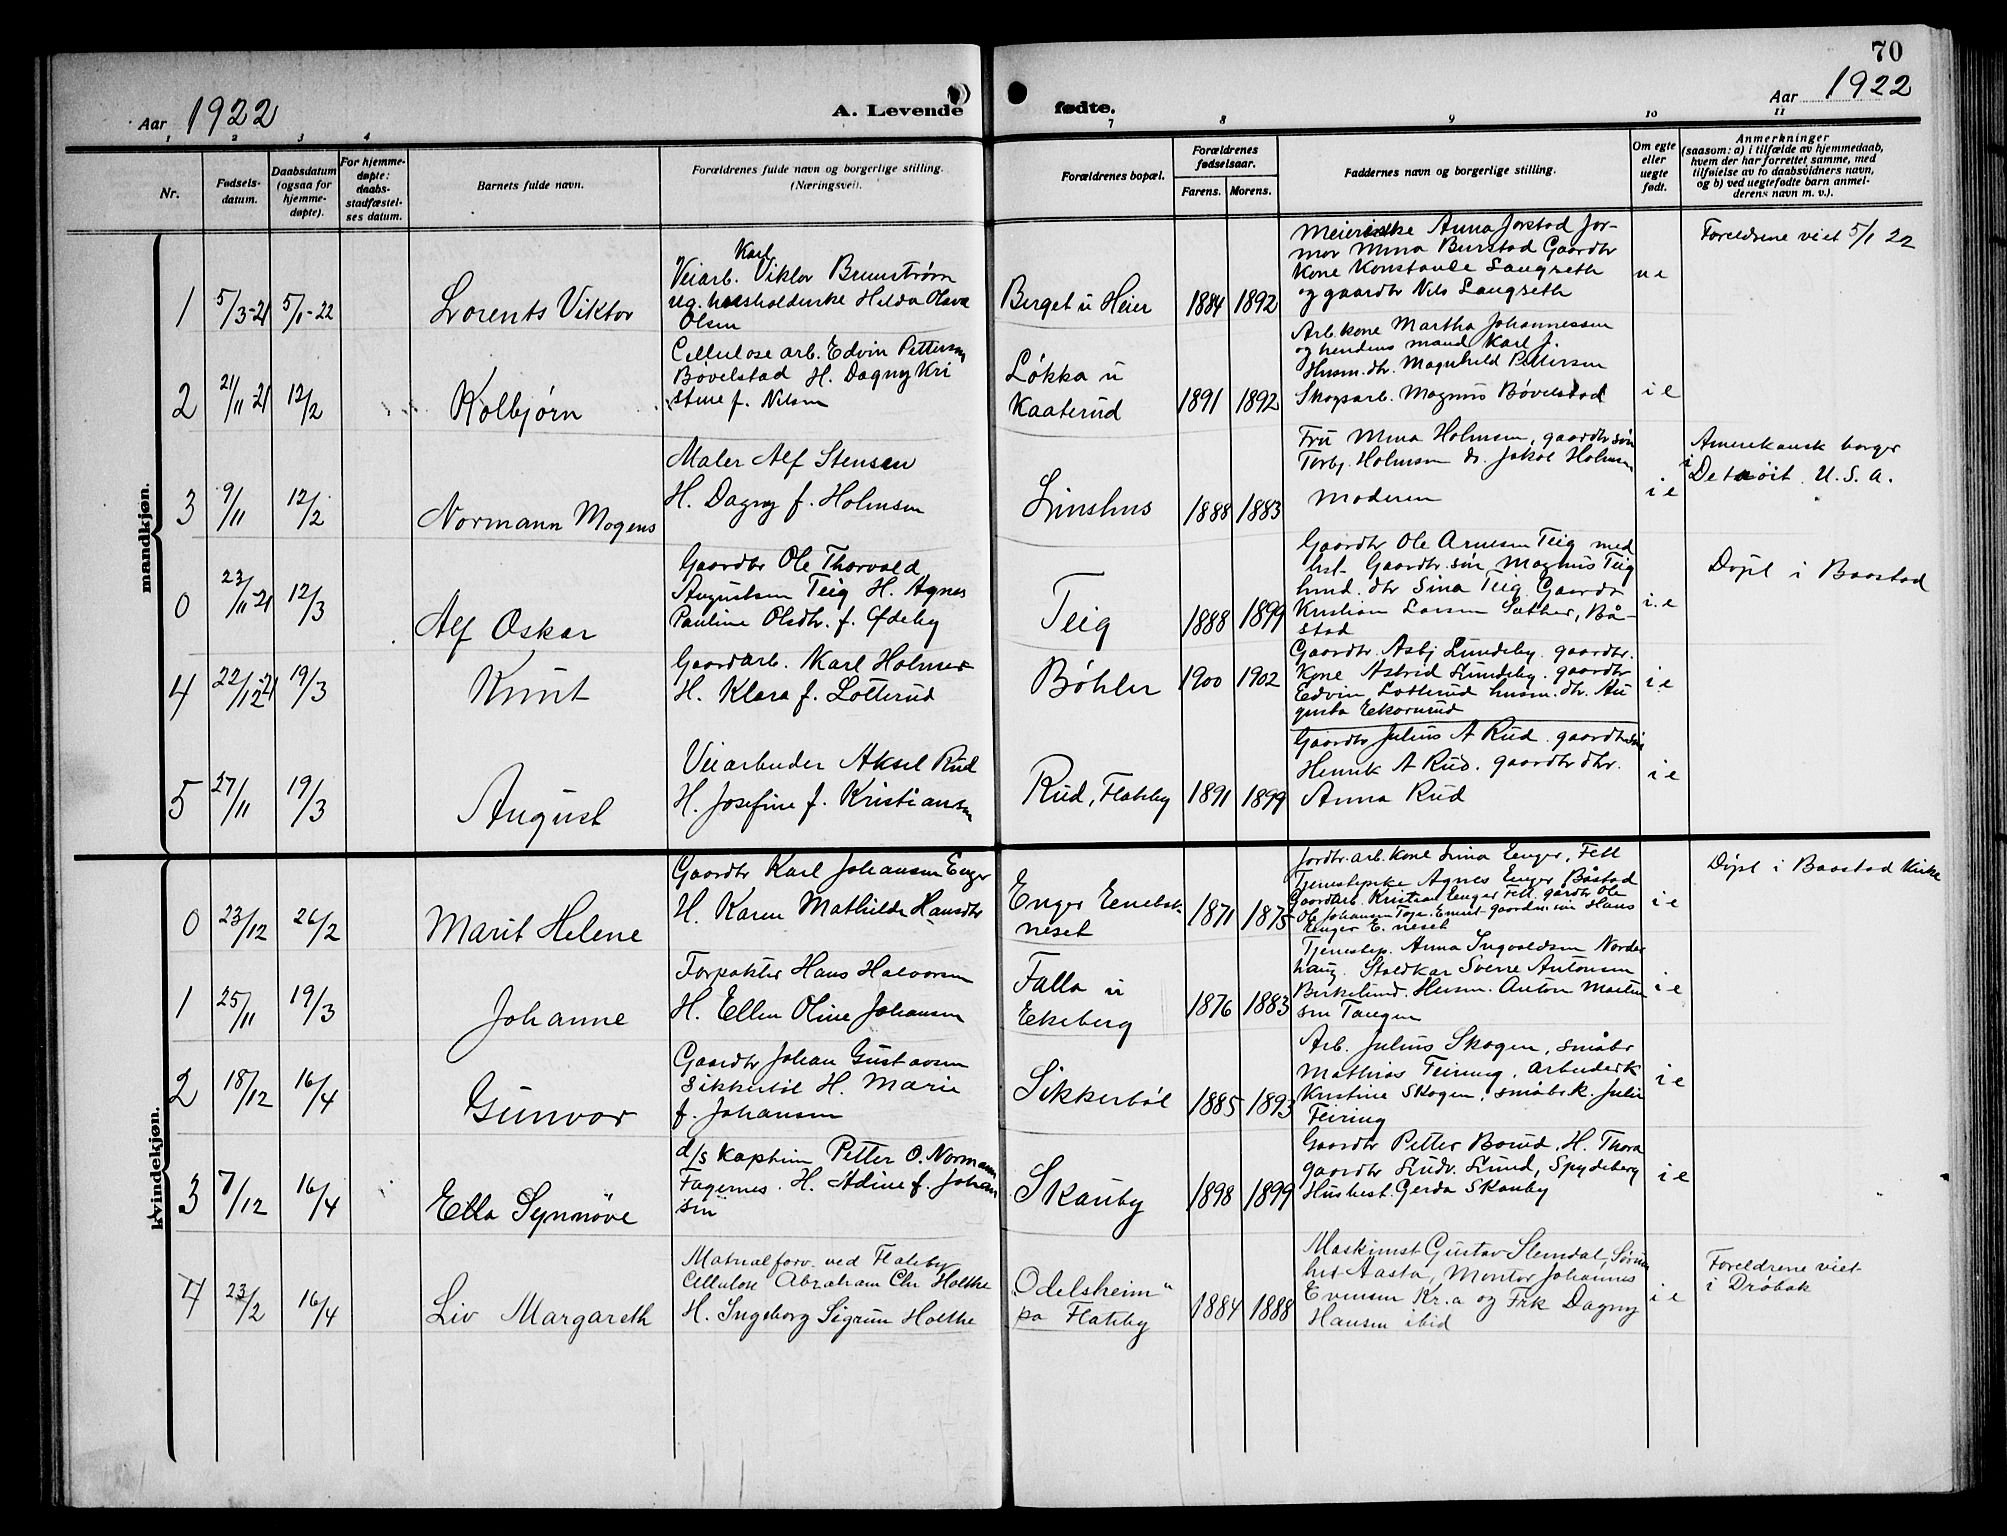 70
Aar 1922
A. Levende fødte.
Aar 1922
1 2 3 4 7 8 9 10 11
Nr.
Fødsels-
datum.
Daabsdatum
(ogsaa for
hjemme-
døpte).
For hjemme-
døpte:
daabs-
stadfæstel-
ses datum.
Barnets fulde navn.
Forældrenes fulde navn og borgerlige stilling.
(Næringsvei).
Forældrenes bopæl.
Forældrenes
fødselsaar.
Farens. Morens.
Faddernes navn og borgerlige stilling.
Om egte
eller
uegte
født.
Anmerkninger
(saasom: a) i tilfælde av hjemmedaab,
hvem der har forrettet samme, med
tilføielse av to daabsvidners navn,
og b) ved uegtefødte barn anmel-
derens navn m. v.).
mandkjøn.
1 5/3-21 5/1-22 Lorents Viktor
Karl
Veiarb. Viktor Brunstrøm
og husholderske Helda Olava
Olsen
Berget u Heier 1884 1892
Meierske Anna Jorstad Jor-
mor Mina Burstad Gaardbr
Kone Konstanse Langseth
og gaardbr Nils Langseth
u e
Foreldrene viet 5/1 22
2 21/11-21 12/2 Kolbjørn
Cellulose arb. Edvin Pettersen
Bøvelstad H. Dagny Kri
stine f. Nilsen
Løkka u
Kaaterud
1891 1892
Arb. kone Martha Johannessen
og hendens mand Karl J.
Husm. dtr. Magnhild Pettersen
Skogsarb. Magnus Bøvelstad
i e
3 9/11 12/2 Normann Mogens
Maler Alf Stensen
H. Dagny f. Holmsen
Linshus 1888 1883
Fru Mina Holmsen, gaardbr søn
Torbj. Holmsen do. Jakob Holmsen
Moderen
i e
Amerikansk borger
i Detroit U. S. A.
0 23/11-21 12/3 Alf Oskar
Gaardbr Ole Thorvald
Augustsen Teig H. Agnes
Pauline Olsdtr. f. Ødeby
Teig 1888 1899
Gaardbr Ole Arnesen Teig med
hst. Gaardbr. søn Magnus Teig
hmd. dtr Sina Teig Gaardbr
Kristian Larsen Sæther, Bå-
stad
i. e
Døpt i Baastad
4 22/12-21 19/3 Knut
Gaardarb. Karl Holmer
H. Klara f. Lotterud
Bøhler 1900 1902
Gaardbr. Asbj Lundeby. gaardbr.
Kone Astrid Lundeby. gaardbr
Edvin Lotterud husm. dtr. Au
gusta Ekornrud
i e
5 27/11 19/3 August
Veiarbeider Aksel Rud
H. Josefine f. Kristiansen
Rud, Flateby 1891 1899
Gaardbr Julius A Rud. gaardbr søn
Henrik A Rud. gaardbr dtr.
Anna Rud
i e
kvindekjøn.
0 23/12 26/2 Marit Helene
Gaardbr Karl Johansen Enger
H. Karen Mathilde Hansdtr
Enger Enebak-
neset
1871 1875
Jordbr. arb. kone Lina Enger, Fett
Tjenestepike Agnes Enger Båstad
Gaardarb. Kristian Enger Fett. gårdbr Ole
Enger E. neset
i e
Døpt i Baastad Kirke
1 25/11 19/3 Johanne
Forpakter Hans Halvorsen
H. Ellen Oline Johansen
Falla u
Ekeberg
1876 1883
Tjenestep. Anna Ingvaldsen Norder
haug. Staldkar Sverre Antonsen
Birkelund. Husm. Anton Martin
sen Tangen
i e
2 18/12 16/4 Gunvor
Gaardbr Johan Gustavsen
Sikkerbøl H. Marie
f. Johansen
Sikkerbøl 1885 1893
Arb. Julius Skogen, småbr
Mathias Feiring, arbeiderk
Kristine Skogen, småbr.k. Julie
Feiring
i e
3 7/12 16/4 Ella Synnøve
d/s Kaptein Petter O. Normann
Fagernes. H. Adine f. Johan
sen
Skauby 1898 1899
Gaardbr Petter Borud H. Thora
gaardbr Ludv. Lund, Spydeberg
Husbest. Gerda Skauby
i e
4 23/2 16/4 Liv Margareth
Matrialforv. ved Flateby
Cellulose Abraham Chr Holtke
H. Ingeborg Sigrun Holtke
"Odelsheim"
pa Flateby
1884 1888
Maskinist Gustav Stemdal,
hst Aasta, Montør Johannes
Evensen Kr.a og Frk Dagny
Hansen ibid
i e
Foreldrene viet
i Drøbak